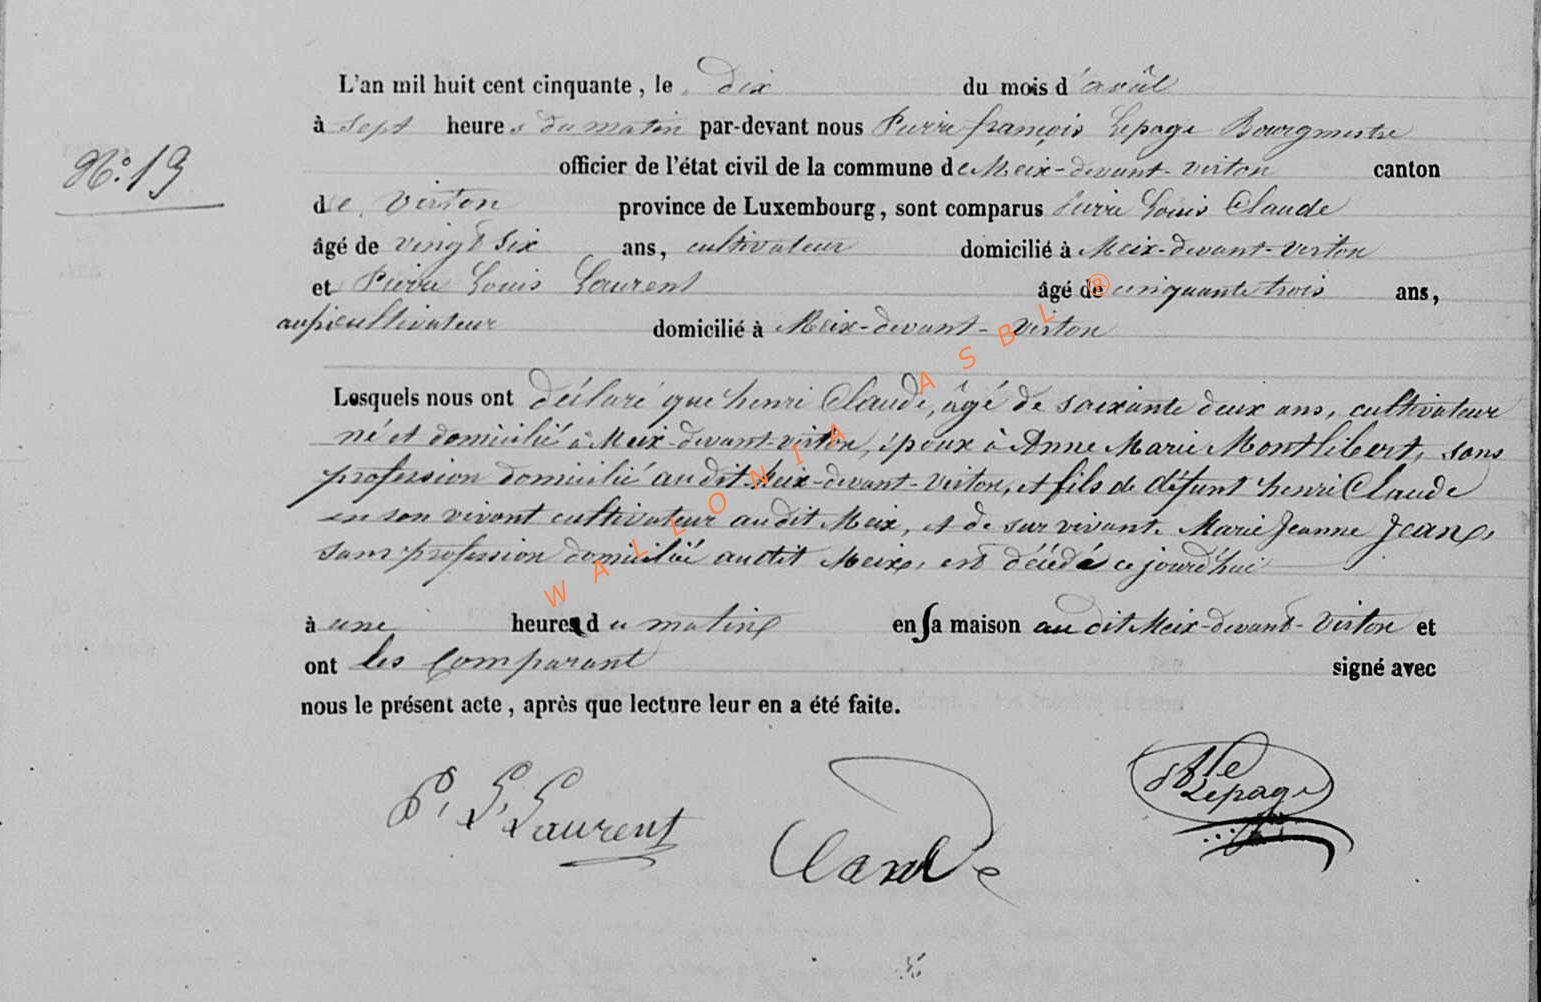 L'an mil huit cent cinquante, le dix du mois d'août
à sept heures du matin par-devant nous Pierre françois Lepage Bourgmestre
N:° 19
officier de l'état civil de la commune de Meix-devant-virton canton
de Virton province de Luxembourg, sont comparus Pierre Louis Claude
âgé de vingt six ans, cultivateur domicilié à Meix-devant-virton
et Pierre Louis Laurent âgé de cinquante trois ans,
aussi cultivateur domicilié à Meix-devant-virton
Lesquels nous ont déclaré que henri Claude, âgé de soixante deux ans, cultivateur
né et domicilié à Meix-devant-virton, époux à Anne Marie Montlibert, sans
profession domicilié au dit Meix-devant-Virton, et fils de défunt henri Claude
en son vivant cultivateur au dit Meix, et de survivant Marie Jeanne Jean,
sans profession domicilié au dit Meix, est décédé ce jourd'hui
à une heure du matin en sa maison au dit Meix-devant-Virton et
ont les Comparant signé avec
nous le présent acte, après que lecture leur en a été faite.
P. L. Laurent
Claude
Lepage
WALLONIA ASBL ®